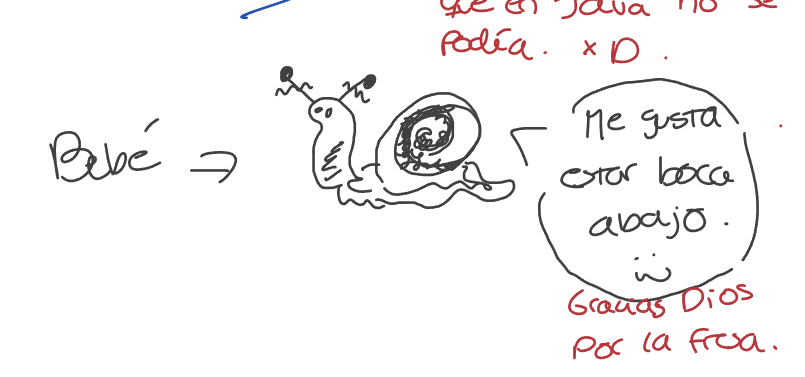 que en Java no se
Podía. xD.
Bebé →
Me gusta
estar boca
abajo.
Gracias Dios
Por la fresa.